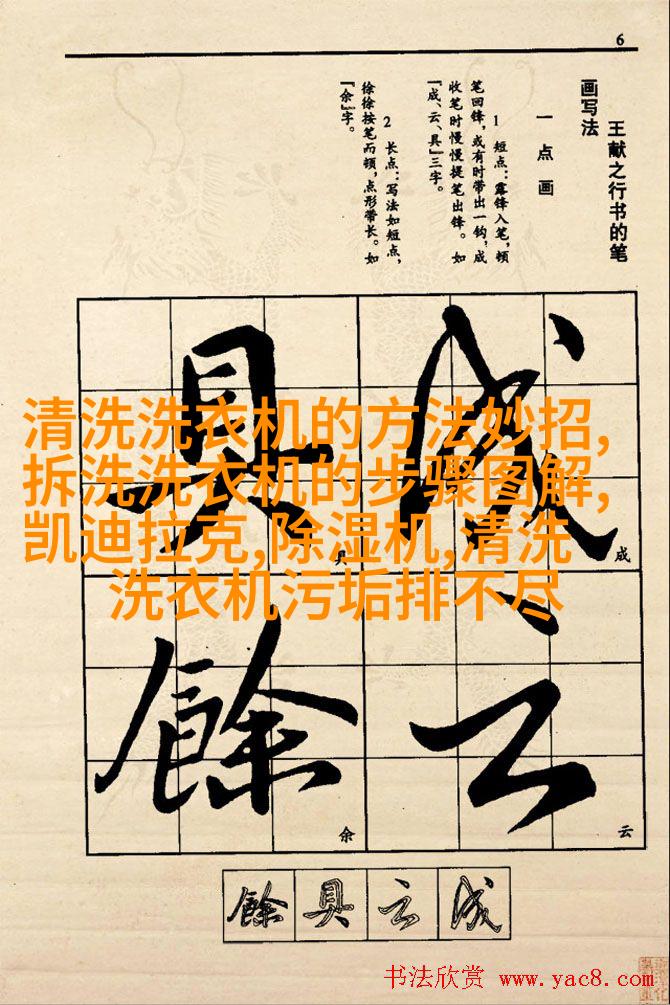 6
王献之行书的笔
画写法
一 点 画
1 短点:露锋入笔,顿
笔回锋,或有时带出一钩,成
收笔时慢慢提笔出锋。如
“成、云、具”三字。
2 长点:写法如短点,
徐徐按笔而顿,点形带长。如
“余”字。
成
具
云
餘
成
具
云
余
清洗洗衣机的方法妙招,
拆洗洗衣机的步骤图解,
凯迪拉克,除湿机,清洗
洗衣机污垢排不尽
餘
具
云
成
书法欣赏 www.yac8.com